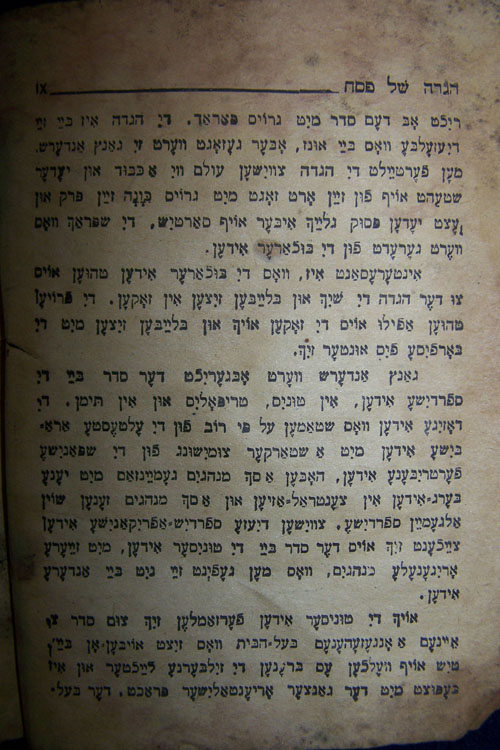 הגדה של פסח IX
ריכט אב דעם סדר מיט גרויס פאראד. די הגדה איז ביי זיי
דיזעלבע וואס ביי אונז, אבער געזאגט ווערט זי גאנץ אנדערש.
מען פערטיילט די הגדה צווישען עולם ווי א כבוד און יעדער
שטעהט אויף פון זיין ארט זאגט מיט גרויס כונה זיין פרק און
יעדען פסוק גלייך איבער אויף סארטיש, די שפראך וואס
ווערט גערעדט פון די בוכארער אידען.
אינטערעסאנט איז, וואס די בוכארער אידען טהוען אויס
צו דער הגדה די שיך און בלייבען זיצען אין זאקען. די פרויען
טהוען אפילו אויס די זאקען אויך און בלייבען זיצען מיט די
בארפיסע פיס אונטער זיך.
גאנץ אנדערש ווערט אבגעריכט דער סדר ביי די
ספרדישע אידען, אין טוניס, טריפאליס און אין תימן. די
דאזיגע אידען וואס שטאמען על פי רוב פון די עלטעסטע ארא־
בישע אידען מיט א שטארקער צומישונג פון די שפאנישע
פערטריבענע אידען, האבען א סך מנהגים געמיינזאם מיט יענע
בערג־אידען אין צענטראל־אזיען און א סך מנהגים זענען שוין
אלגעמיין ספרדישע. צווישען דיעזע ספרדיש־אפריקאנישע אידען
צייכענט זיך אויס דער סדר ביי די טוניסער אידען, מיט זייערע
אריגינעלע מנהגים, וואס מען געפינט זיי ניט ביי אנדערע
אידען.
אויך די טוניסער אידען פערזאמלען זיך צום סדר צו
איינעם א אנגעזעהענעם בעל־הבית וואס זיצט אויבען־אן ביים
טיש אויף וועלכען עס ברענען די זילבערנע לייכטער און איז
בעפוצט מיט דער גאנצער אריענטאלישער פראכט. דער בעל־